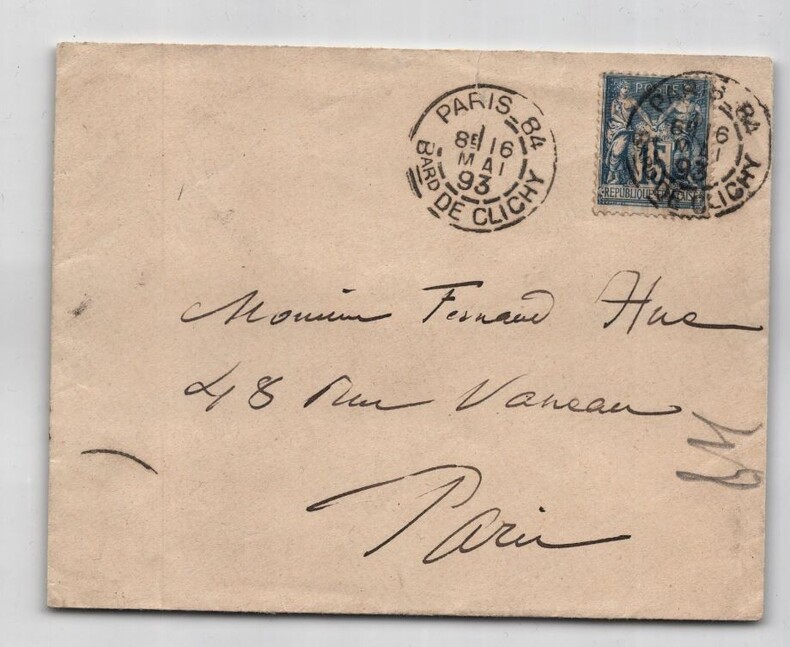 PARIS_84
8E 16
MAI
93
BARD DE CLICHY
POSTES
15
REPUBLIQUE FRANCAISE
PARIS_84
8E 16
MAI
93
BARD DE CLICHY
Monsieur Fernand Hue
48 Rue Vaneau
Paris